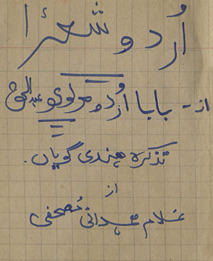 اُردو شعراء
از - بابا اُردو مولوی عبدالحق
تذکرہ ہندی گویاں.
از
غلام ہمدانی مُصحفی